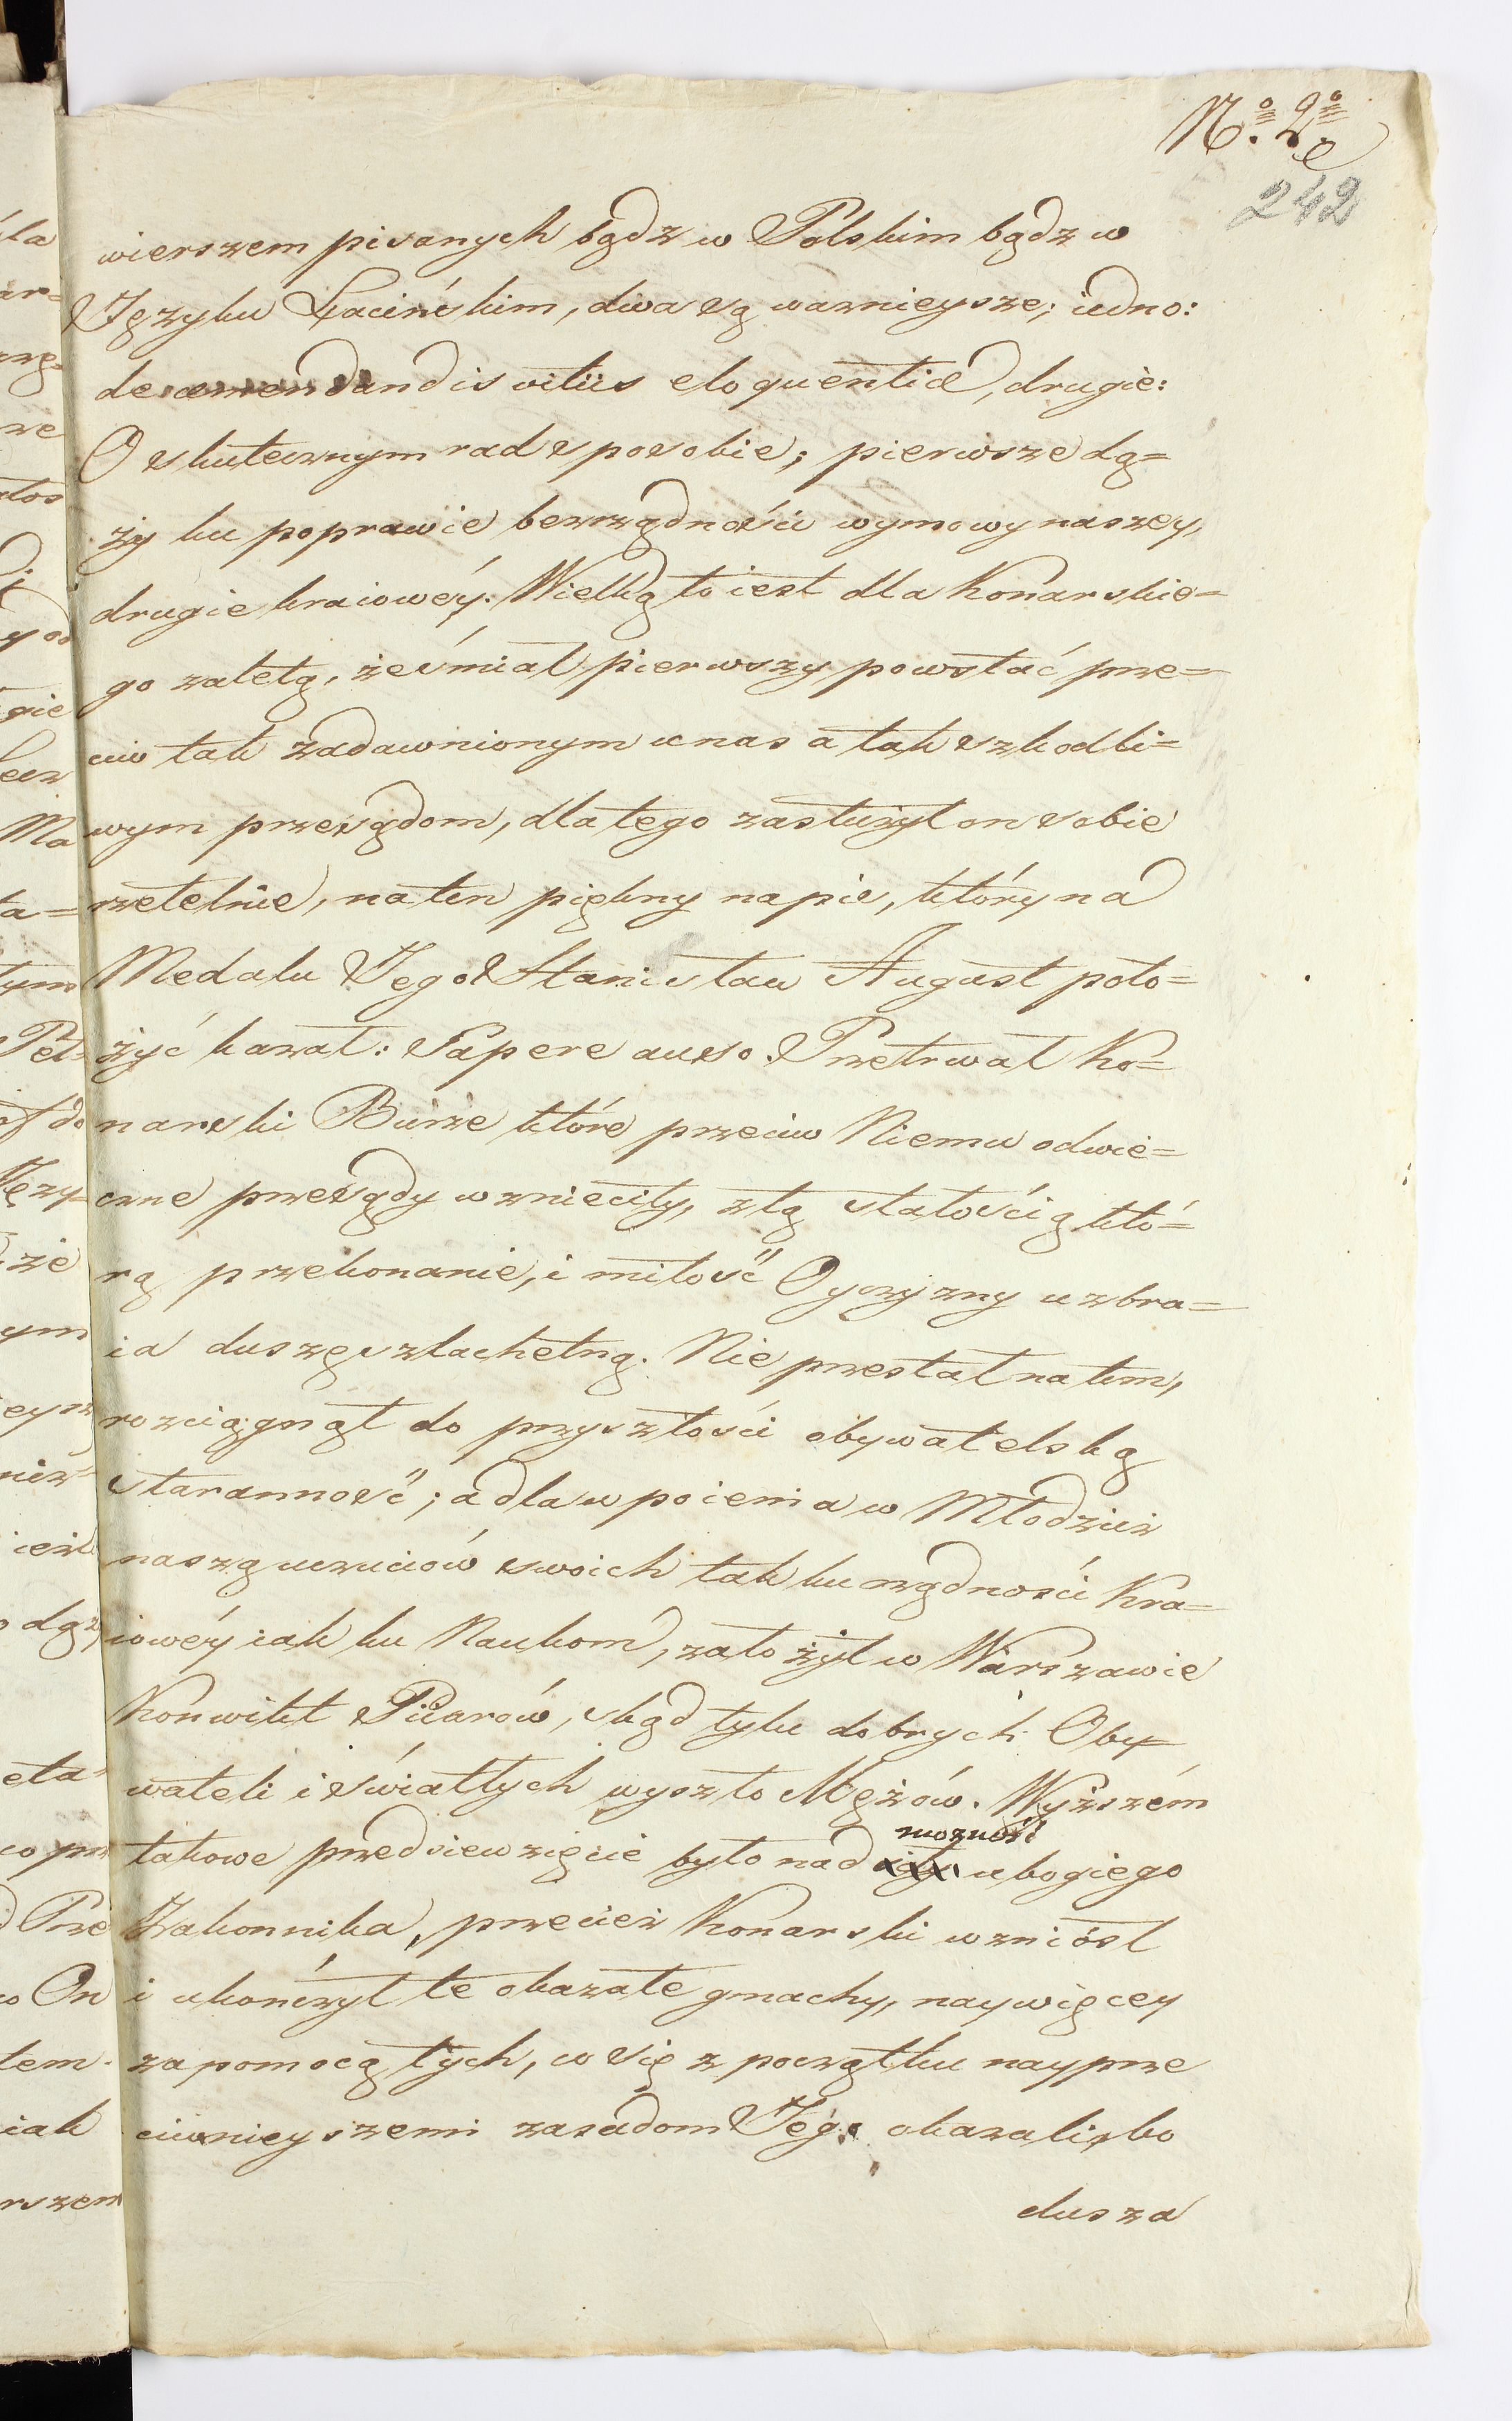 No. 2o
242
wierszem pisanych bądz w Polskim bądz w
Języku Łacińskim, dwa są waznieysze; iedno:
de emendandis vitiis eloquentiæ, drugie:
O skutecznym rad sposobie; pierwsze dą=
ży ku poprawie bezrządności wymowy naszey,
drugie kraiowéy. Wielką to iest dla Konarskie=
go zaletą, że śmiał pierwszy powstać prze=
ciw tak zadawnionym u nas a tak szkodli=
wym przesądom, dla tego zasłużył on sobie
rzetelnie, na ten piękny napis, który na
Medalu Jego Stanisław August poło=
żyć kazał: Sapere auso. Przetrwał Ko=
narski Burze które przeciw Niemu odwie=
czne przesądy wznieciły, z tą stałością któ=
rą przekonanie, i miłość Oyczyzny uzbra=
ia duszę szlachetną. Nie przestał na tem,
rozciągnął do przyszłości obywatelską
staranność; a dla wpoienia w Młodzież
naszą uczuciów swoich tak ku rządności Kra=
iowéy iak ku Naukom, założył w Warszawie
Konwikt Piiarów, skąd tylu dobrych Oby=
wateli i światłych wyszło Mężów. Wyższém
możność
takowe przedsiewzięcie było nad ubogiego
Zakonnika, przecież Konarski wzniósł
i ukończył te okazałe gmachy, naywięcey
za pomocą tych, co się z początku nayprze
ciwnieyszemi zasadom Jego okazali, bo
dusza